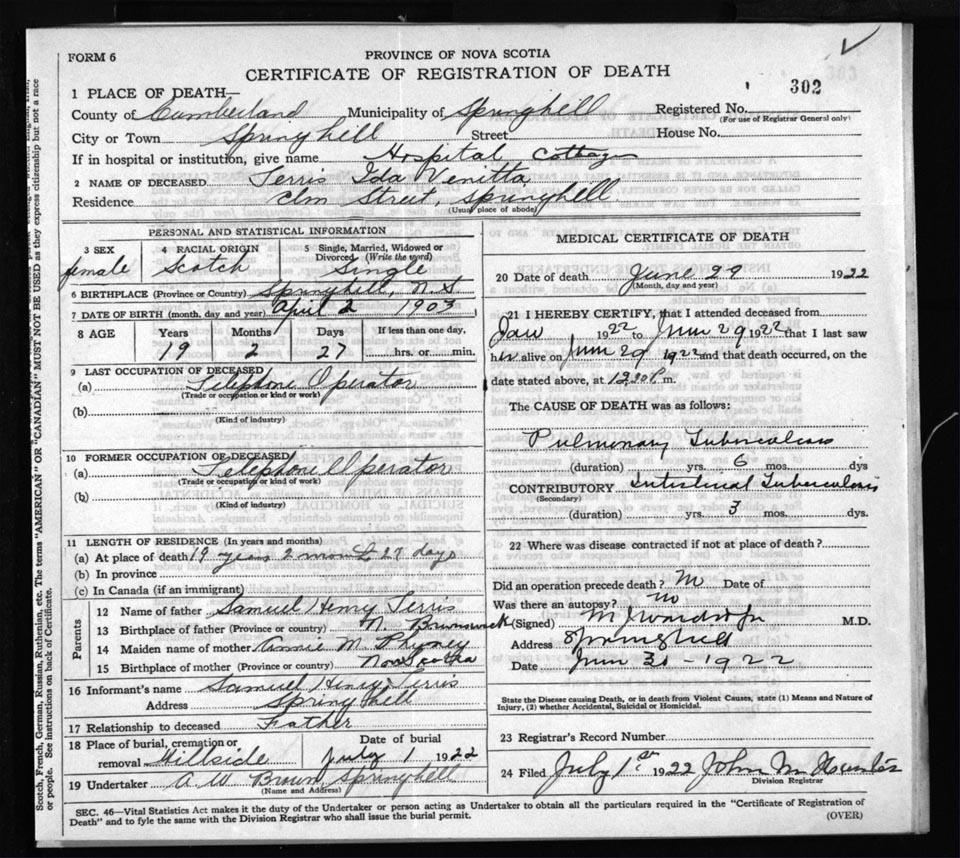 FORM 6
PROVINCE OF NOVA SCOTIA
CERTIFICATE OF REGISTRATION OF DEATH
302
1 PLACE OF DEATH—
County of Cumberland Municipality of Springhill Registered No.
(For use of Registrar General only)
City or Town Springhill Street House No.
If in hospital or institution, give name Hospital Cottage
2 NAME OF DECEASED Terris Ida Venitta
Residence Elm Street, Springhill
(Usual place of abode)
PERSONAL AND STATISTICAL INFORMATION
3 SEX 4 RACIAL ORIGIN 5 Single, Married, Widowed or Divorced (Write the word)
female Scotch Single
6 BIRTHPLACE (Province or Country) Springhill, N.S
7 DATE OF BIRTH (month, day and year) April 2 1903
8 AGE Years Months Days If less than one day,
19 2 27 hrs. or min.
9 LAST OCCUPATION OF DECEASED
(a) Telephone Operator
(Trade or occupation or kind or work)
(b)
(Kind of industry)
10 FORMER OCCUPATION OF DECEASED
(a) Telephone Operator
(Trade or occupation or kind of work)
(b)
(Kind of industry)
11 LENGTH OF RESIDENCE (In years and months)
(a) At place of death 19 years 2 months 27 days
(b) In province
(c) In Canada (if an immigrant)
Parents
12 Name of father Samuel Henry Terris
13 Birthplace of father (Province or country) N. Brunswick
14 Maiden name of mother Annie M.
15 Birthplace of mother (Province or country) Nova Scotia
16 Informant's name Samuel Henry Terris
Address Springhill
17 Relationship to deceased Father
18 Place of burial, cremation or removal Hillside Date of burial July 1 1922
19 Undertaker A W Brown, Springhill
(Name and Address)
MEDICAL CERTIFICATE OF DEATH
20 Date of death June 29 1922
(Month, day and year)
21 I HEREBY CERTIFY, that I attended deceased from
Jan 1922 to June 29 1922 that I last saw
her alive on June 29 1922 and that death occurred, on the
date stated above, at 12 30 P. m.
The CAUSE OF DEATH was as follows:
Pulmonary Tuberculosis
(duration) yrs. 6 mos. dys
CONTRIBUTORY Intestinal Tuberculosis
(Secondary)
(duration) yrs. 3 mos. dys.
22 Where was disease contracted if not at place of death?
Did an operation precede death? No Date of
Was there an autopsy? No
(Signed) M.D.
Address Springhill
Date June 30 - 1922
State the Disease causing Death, or in death from Violent Causes, state (1) Means and Nature of
Injury, (2) whether Accidental, Suicidal or Homicidal.
23 Registrar's Record Number
24 Filed July 1st 1922 John M
Division Registrar
SEC. 46—Vital Statistics Act makes it the duty of the Undertaker or person acting as Undertaker to obtain all the particulars required in the "Certificate of Registration of
Death" and to fyle the same with the Division Registrar who shall issue the burial permit.
(OVER)
Scotch, French, German, Russian, Ruthenian, etc. The terms "AMERICAN" or "CANADIAN" MUST NOT BE USED as they express citizenship but not a race
or people. See instructions on back of Certificate.